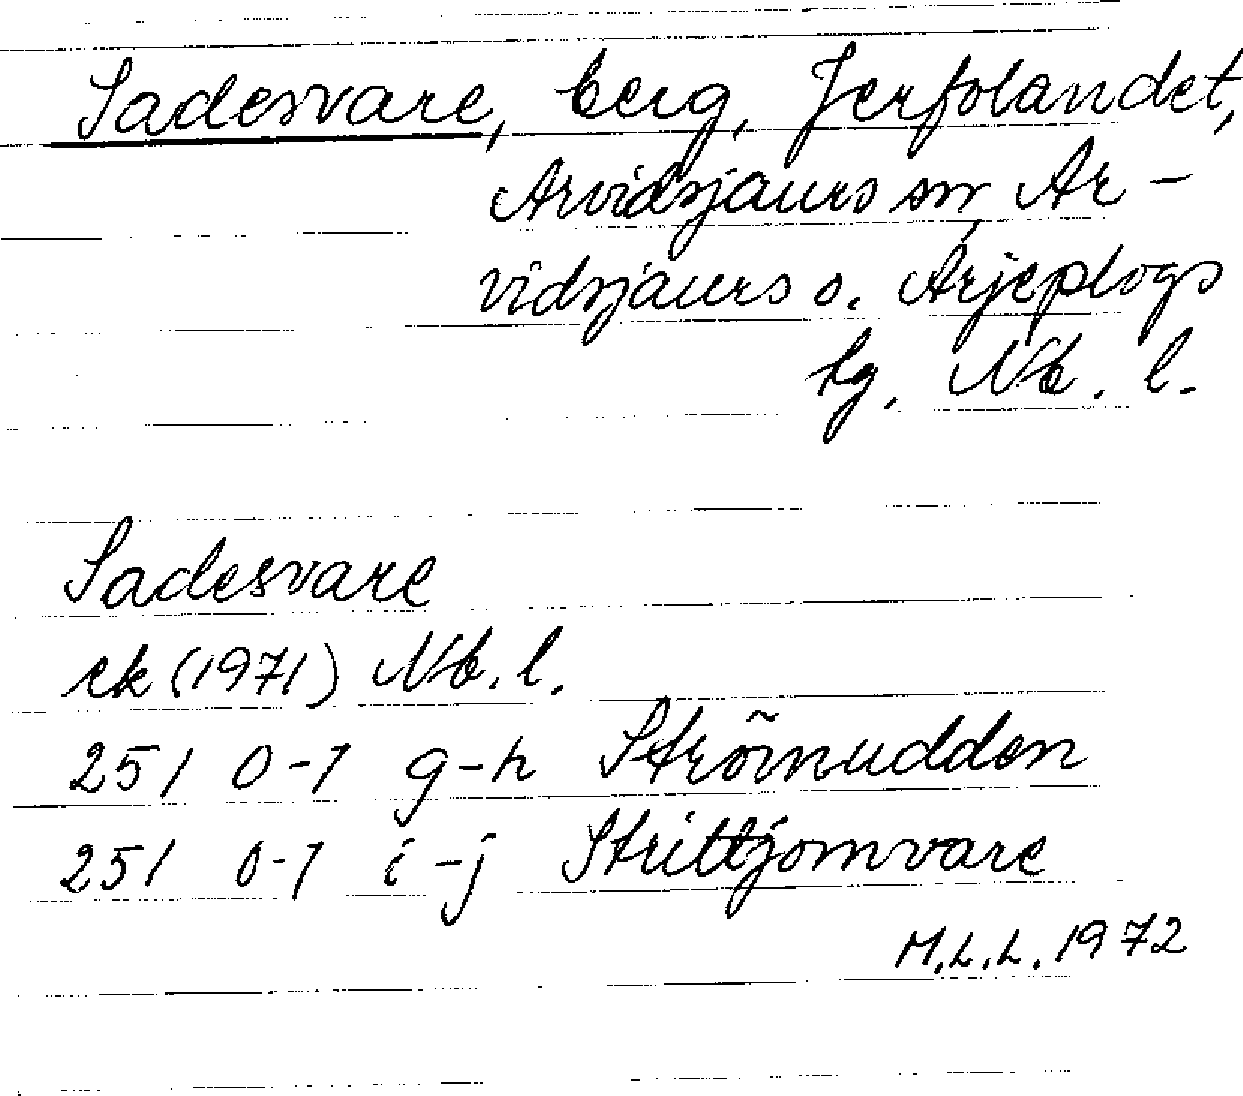 Sadesvare, berg, Jerfolandet,
Arvidsjaurs sn, Ar-
vidsjaurs o. Arjeplogs
tg, Nb. l.
Sadesvare
ek (1971) Nb. l.
25 I 0-1 g-h Strömudden
25 I 0-1 i-j Strittjomvare
M.L.L. 1972